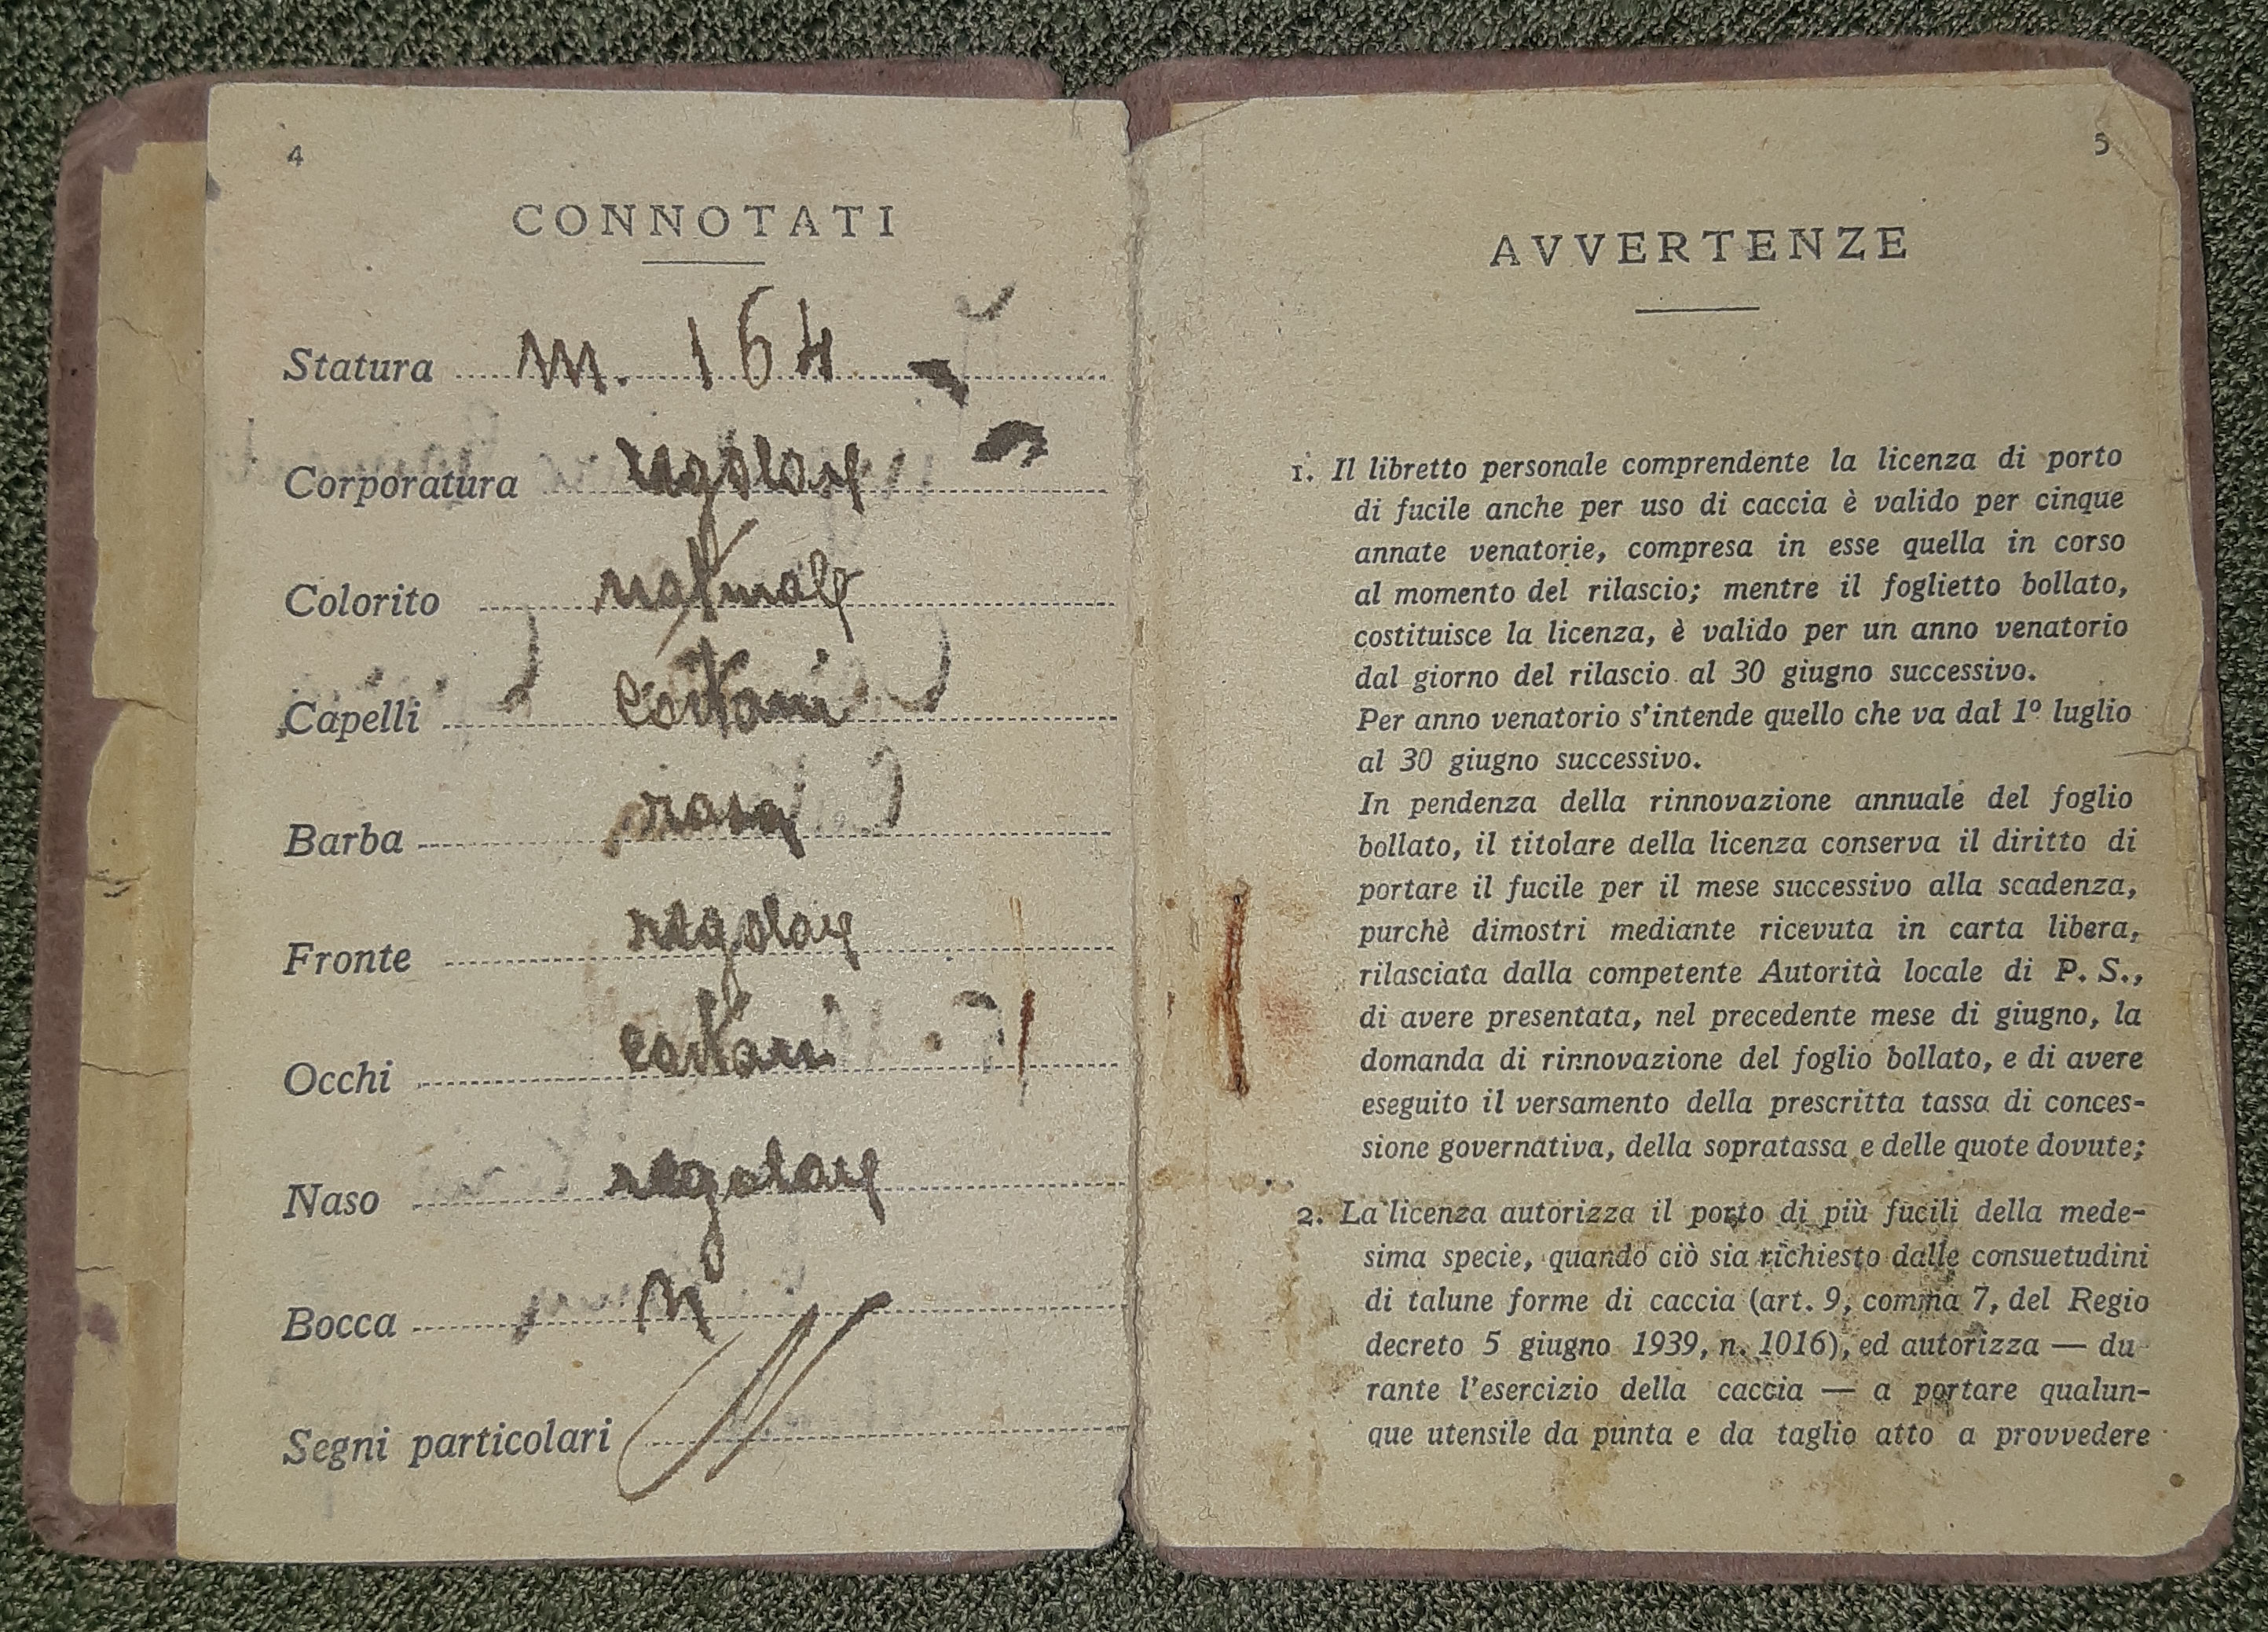 4
CONNOTATI
Statura m. 164
Corporatura regolare
Colorito naturale
Capelli castani
Barba rasa
Fronte regolare
Occhi castani
Naso regolare
Bocca
Segni particolari
5
AVVERTENZE
1. Il libretto personale comprendente la licenza di porto
di fucile anche per uso di caccia è valido per cinque
annate venatorie, compresa in esse quella in corso
al momento del rilascio; mentre il foglietto bollato,
costituisce la licenza, è valido per un anno venatorio
dal giorno del rilascio al 30 giugno successivo.
Per anno venatorio s'intende quello che va dal 1º luglio
al 30 giugno successivo.
In pendenza della rinnovazione annuale del foglio
bollato, il titolare della licenza conserva il diritto di
portare il fucile per il mese successivo alla scadenza,
purchè dimostri mediante ricevuta in carta libera,
rilasciata dalla competente Autorità locale di P. S.,
di avere presentata, nel precedente mese di giugno, la
domanda di rinnovazione del foglio bollato, e di avere
eseguito il versamento della prescritta tassa di conces-
sione governativa, della sopratassa e delle quote dovute;
2. La licenza autorizza il porto di più fucili della mede-
sima specie, quando ciò sia richiesto dalle consuetudini
di talune forme di caccia (art. 9, comma 7, del Regio
decreto 5 giugno 1939, n. 1016), ed autorizza — du
rante l'esercizio della caccia — a portare qualun-
que utensile da punta e da taglio atto a provvedere